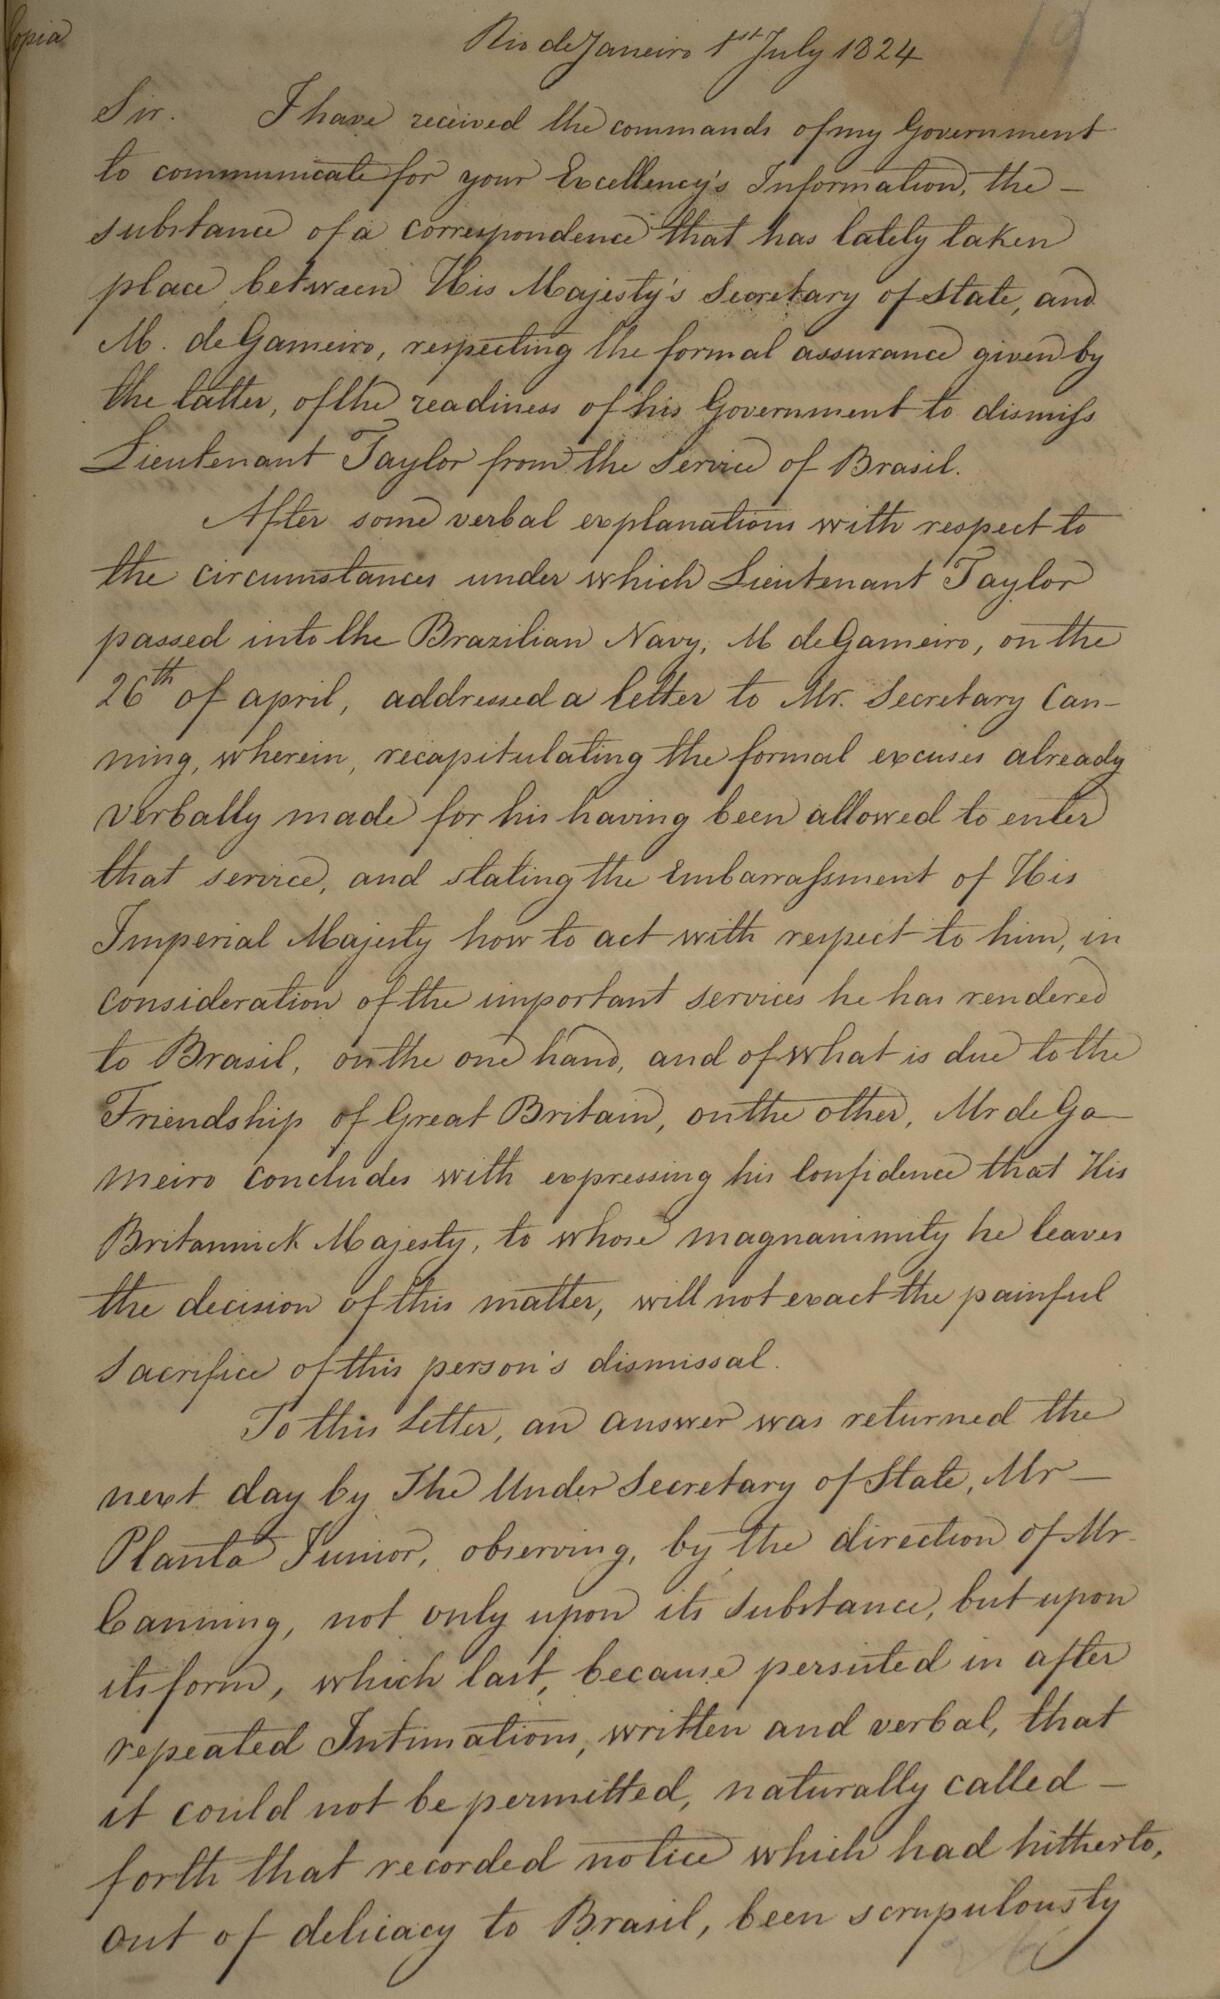 Copia
19
Rio de Janeiro 1st July 1824
Sir. I have received the commands of my Government
to communicate for your Excellency's Information, the —
substance of a correspondence that has lately taken
place between His Majesty's Secretary of State, and
M. de Gameiro, respecting the formal assurance given by
the latter, of the readiness of his Government to dismiss
Lieutenant Taylor from the Service of Brasil.
After some verbal explanations with respect to
the circumstances under which Lieutenant Taylor
passed into the Brazilian Navy, M de Gameiro, on the
26th of april, addressed a letter to Mr. Secretary Can-
ning, wherein, recapitulating the formal excuses already
verbally made for his having been allowed to enter
that service, and stating the Embarrassment of His
Imperial Majesty how to act with respect to him, in
consideration of the important services he has rendered
to Brasil, on the one hand, and of what is due to the
Friendship of Great Britain, on the other, Mr de Ga-
meiro concludes with expressing his Confidence that His
Britannick Majesty, to whose magnanimity he leaves
the decision of this matter, will not exact the painful
Sacrifice of this person's dismissal.
To this Letter, an answer was returned the
next day by The Under Secretary of State, Mr —
Planta Junior, observing, by the direction of Mr.
Canning, not only upon its substance, but upon
its form, which last, because persisted in after
repeated Intimations, written and verbal, that
it could not be permitted, naturally called —
forth that recorded notice which had hitherto,
out of delicacy to Brasil, been scrupulously